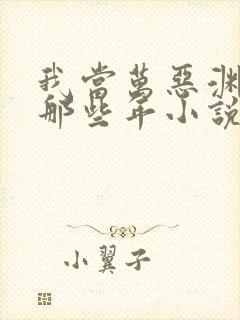 我當萬惡淵
那些年小說
小翼子